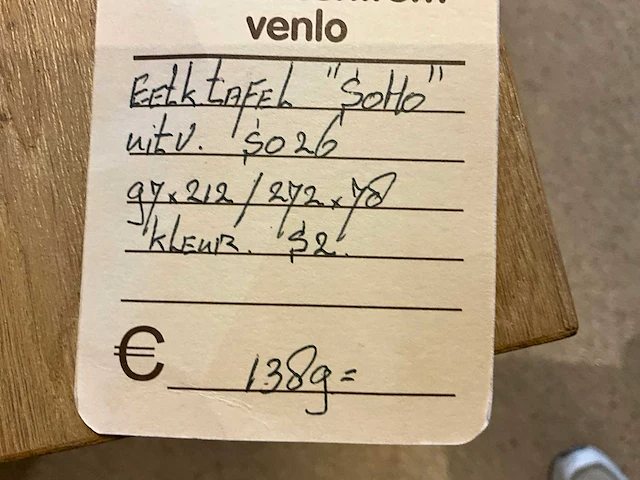 venlo
EEtk tAFEL "SoHo"
uitv. SO26
97x212/272x78
kLEUR. S2.
€ 1389=